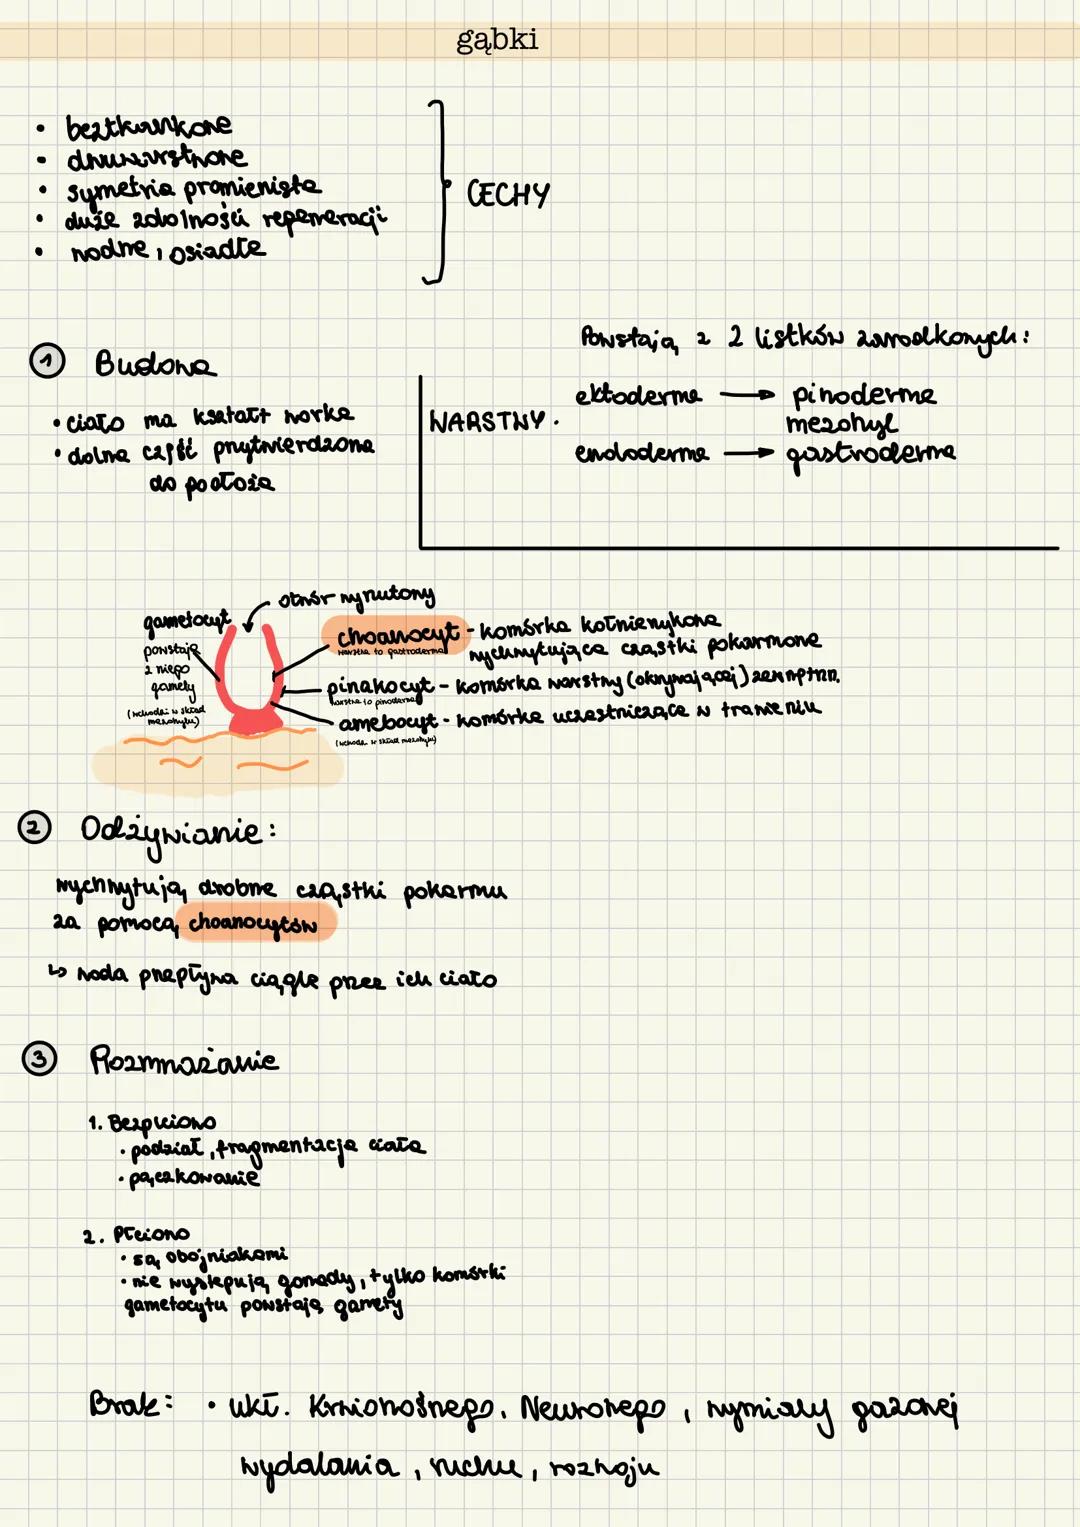 gąbki
• beztkankowe
• dwuwarstwowe
• symetria promienista
• duże zdolności regeneracji
• wodne, osiadłe
CECHY
1 Budowa
• ciało ma kształt worka
• dolna część przytwierdzona
do podłoża
Powstają z 2 listków zarodkowych:
WARSTWY.
ektoderma → pinoderma
mezohyl
endoderma → gastroderma
otwór wyrzutowy
gametocyt
powstają
z niego
gamety
(wchodzi w skład
mezohylu)
choanocyt - komórka kołnierzykowa
warstwa to gastroderma
wychwytująca cząstki pokarmowe
pinakocyt - komórka warstwy (okrywającej) zewnętrzn.
warstwa to pinoderma
amebocyt - komórka uczestnicząca w trawieniu
(wchodzi w skład mezohylu)
2 Odżywianie:
wychwytują drobne cząstki pokarmu
za pomocą choanocytów
↳ woda przepływa ciągle przez ich ciało
3 Rozmnażanie
1. Bezpłciowo
• podział, fragmentacja ciała
• pączkowanie
2. Płciowo
• są obojniakami
• nie występują gonady, tylko komórki
gametocytu powstają gamety
Brak: • ukł. Krwionośnego, Nerwowego, wymiany gazowej
wydalania, ruchu, rozwoju